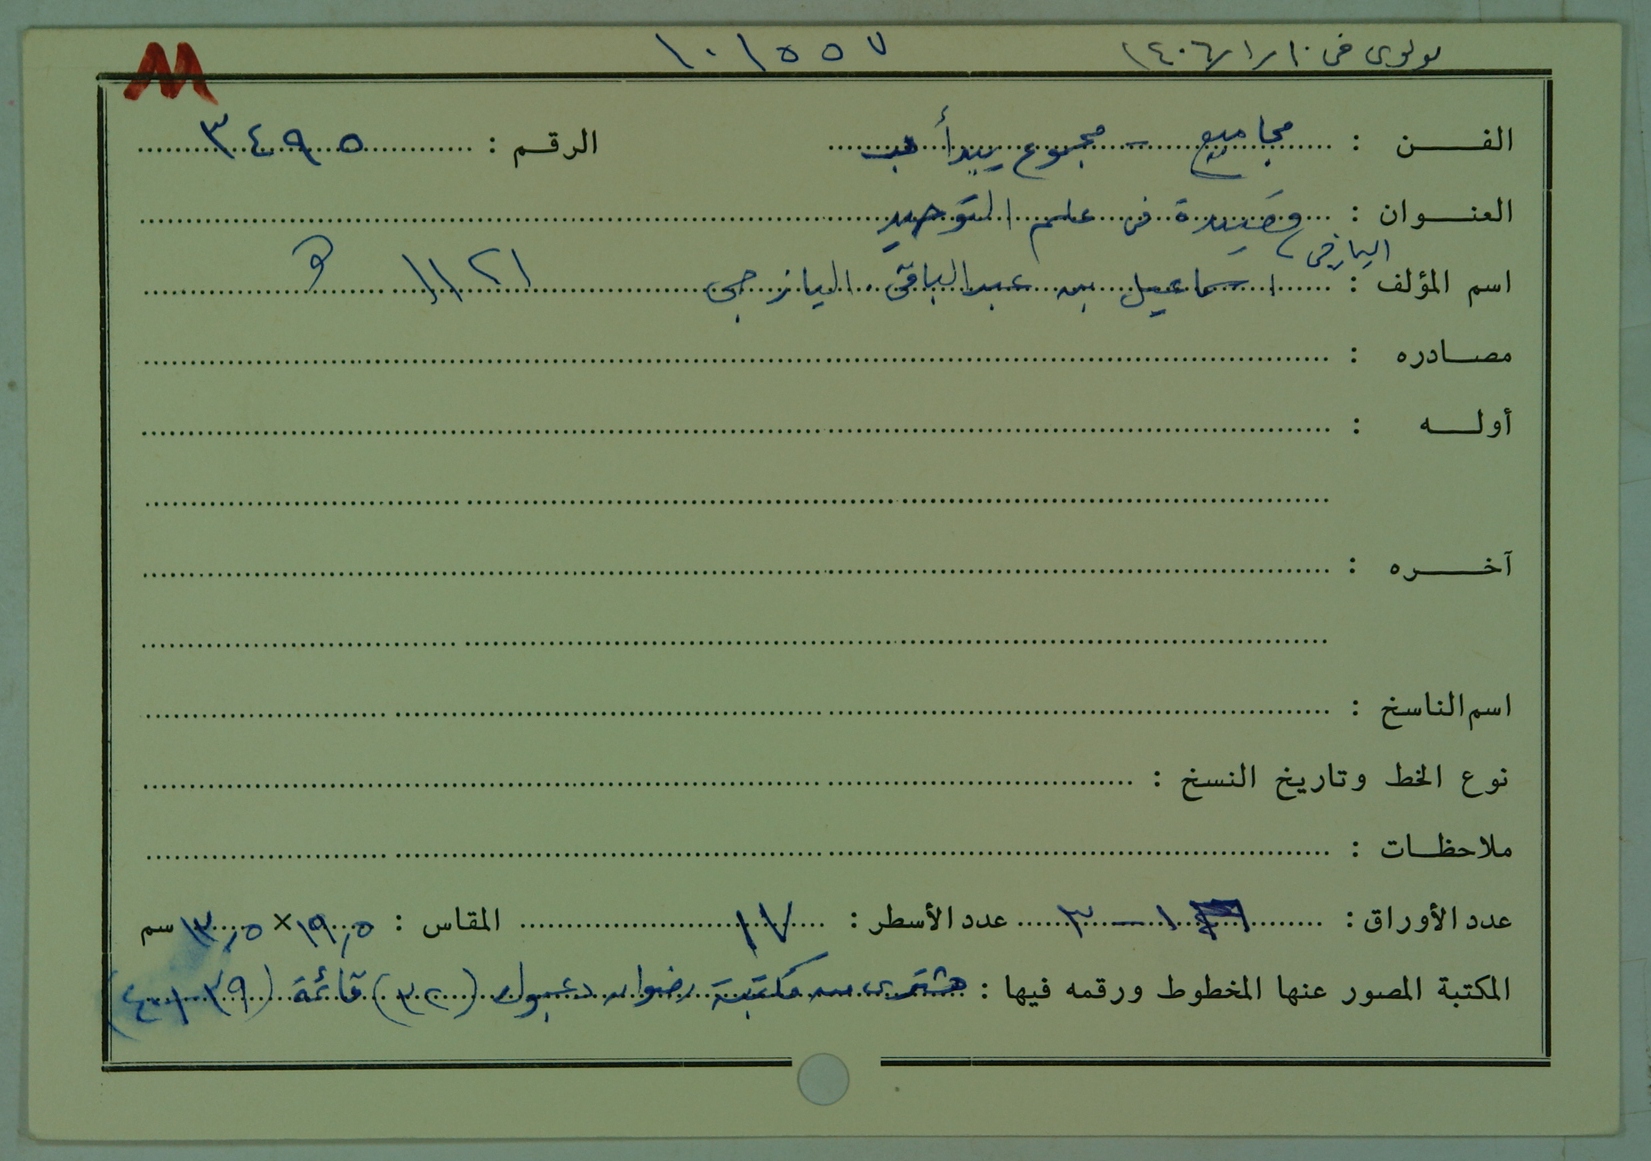 ١٠١٥٥٧ في ١٤٠٦/١/١٠
M
الفن : مجاميع - مجموع يبدأ بـ الرقم : ٣٤٩٥
العنوان : قصيدة في علم التوحيد
اليازجي
اسم المؤلف : اسماعيل بن عبدالباقي اليازجي ١١٢١ هـ
مصادره :
أوله :
آخره :
اسم الناسخ :
نوع الخط وتاريخ النسخ :
ملاحظات :
عدد الأوراق : ١ - ٣ عدد الأسطر : ١٧ المقاس : ١٩,٥ × ١٣,٥ سم
المكتبة المصور عنها المخطوط ورقمه فيها : مشترى من مكتبة رضوان دعبول (٣٢) قائمة